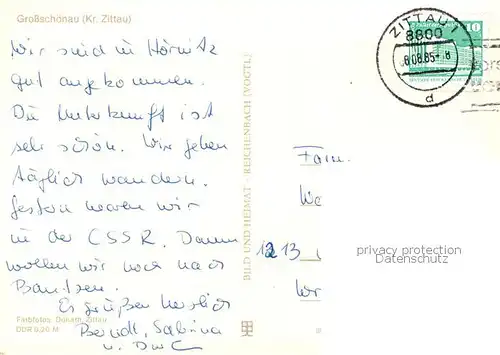 Großschönau (Kr. Zittau)
Wir sind in Hörnitz
gut angekommen.
Die Unterkunft ist
sehr schön. Wir gehen
täglich wandern.
Gestern waren wir
in der CSSR. Dann
wollen wir noch nach
Bautzen.
Es grüßen herzlich
Berndt, Sabrina
u.
Farbfotos: Donath, Zittau
DDR 0,20 M
BILD UND HEIMAT · REICHENBACH (VOGTL)
ZITTAU 1
8800
08.85
d
10
Fam.
1213
privacy protection
Datenschutz